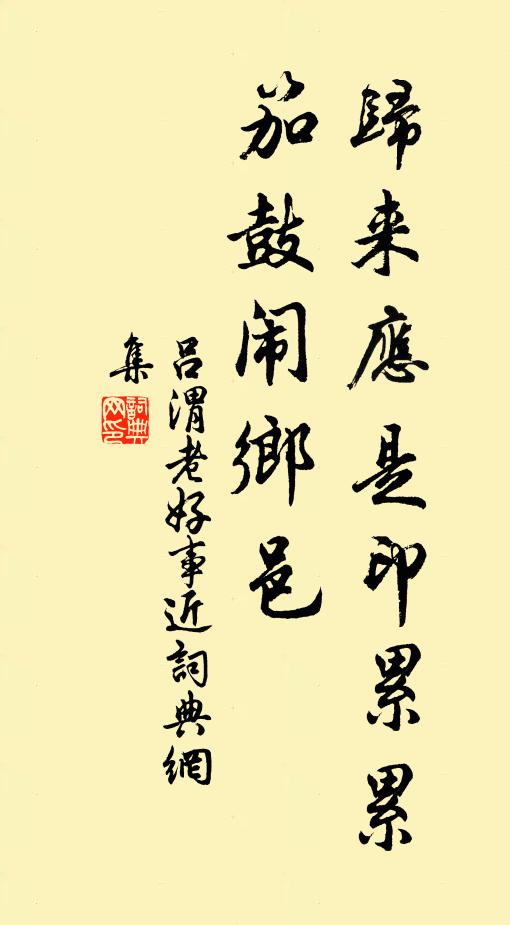 歸来應是印累累
笳鼓闹鄉邑
吕渭老好事近詞典網
集
詞典
网印